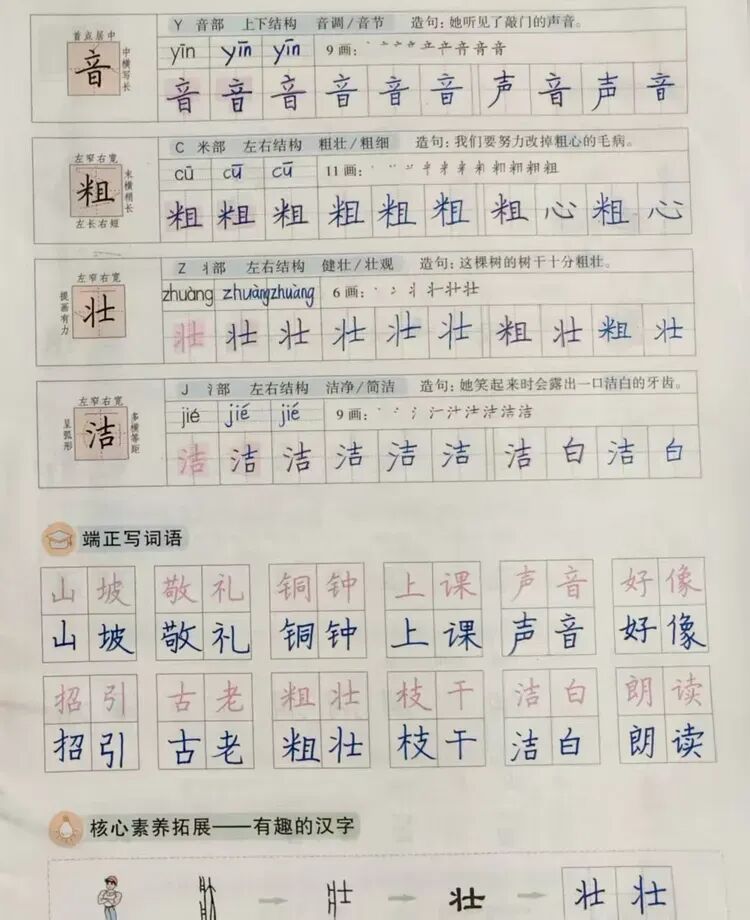 首点居中
音
中横写长
Y 音部 上下结构 音调/音节 造句：她听见了敲门的声音。
yīn yīn yīn 9画：
音 音 音 音 音 音 声 音 声 音
左窄右宽
粗
末横稍长
左长右短
C 米部 左右结构 粗壮/粗细 造句：我们要努力改掉粗心的毛病。
cū cū cū 11画：
粗 粗 粗 粗 粗 粗 粗 心 粗 心
左窄右宽
提画有力
壮
Z 丬部 左右结构 健壮/壮观 造句：这棵树的树干十分粗壮。
zhuàng zhuàng zhuàng 6画：
壮 壮 壮 壮 壮 壮 粗 壮 粗 壮
左窄右宽
呈弧形
洁
多横等距
J 氵部 左右结构 洁净/简洁 造句：她笑起来时会露出一口洁白的牙齿。
jié jié jié 9画：
洁 洁 洁 洁 洁 洁 洁 白 洁 白
端正写词语
山坡 敬礼 铜钟 上课 声音 好像
山坡 敬礼 铜钟 上课 声音 好像
招引 古老 粗壮 枝干 洁白 朗读
招引 古老 粗壮 枝干 洁白 朗读
核心素养拓展——有趣的汉字
壮 壮 壮